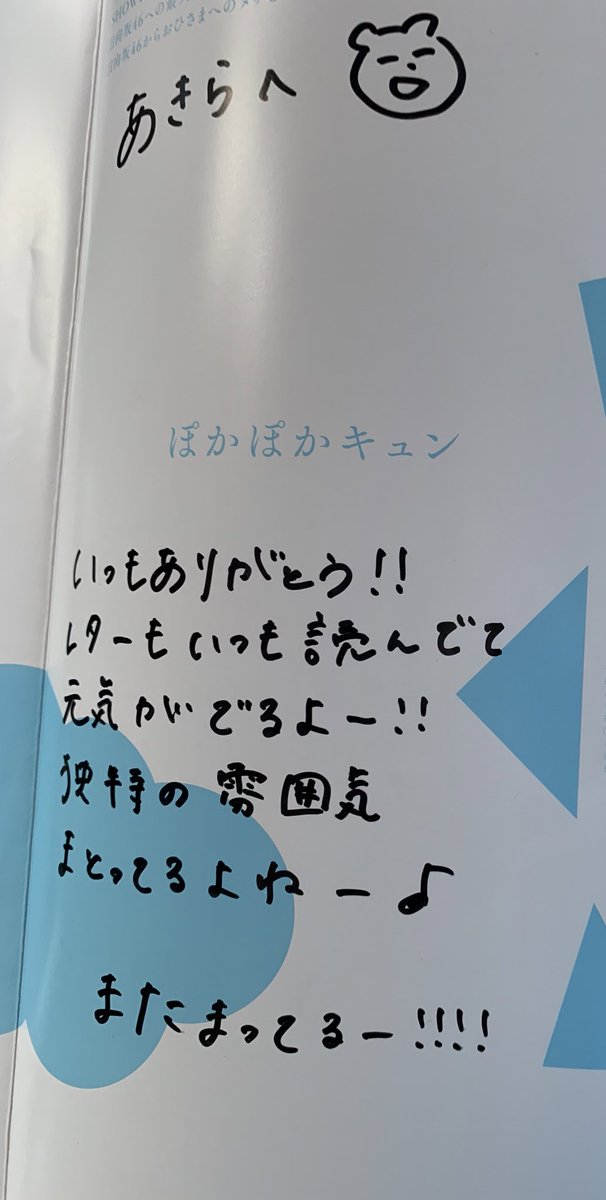 日向坂46からおひさまへの
あきらへ
ぽかぽかキュン
いつもありがとう!!
レターもいつも読んでて
元気がでるよー!!
独特の雰囲気
まとってるよねー♪
またまってるー!!!!